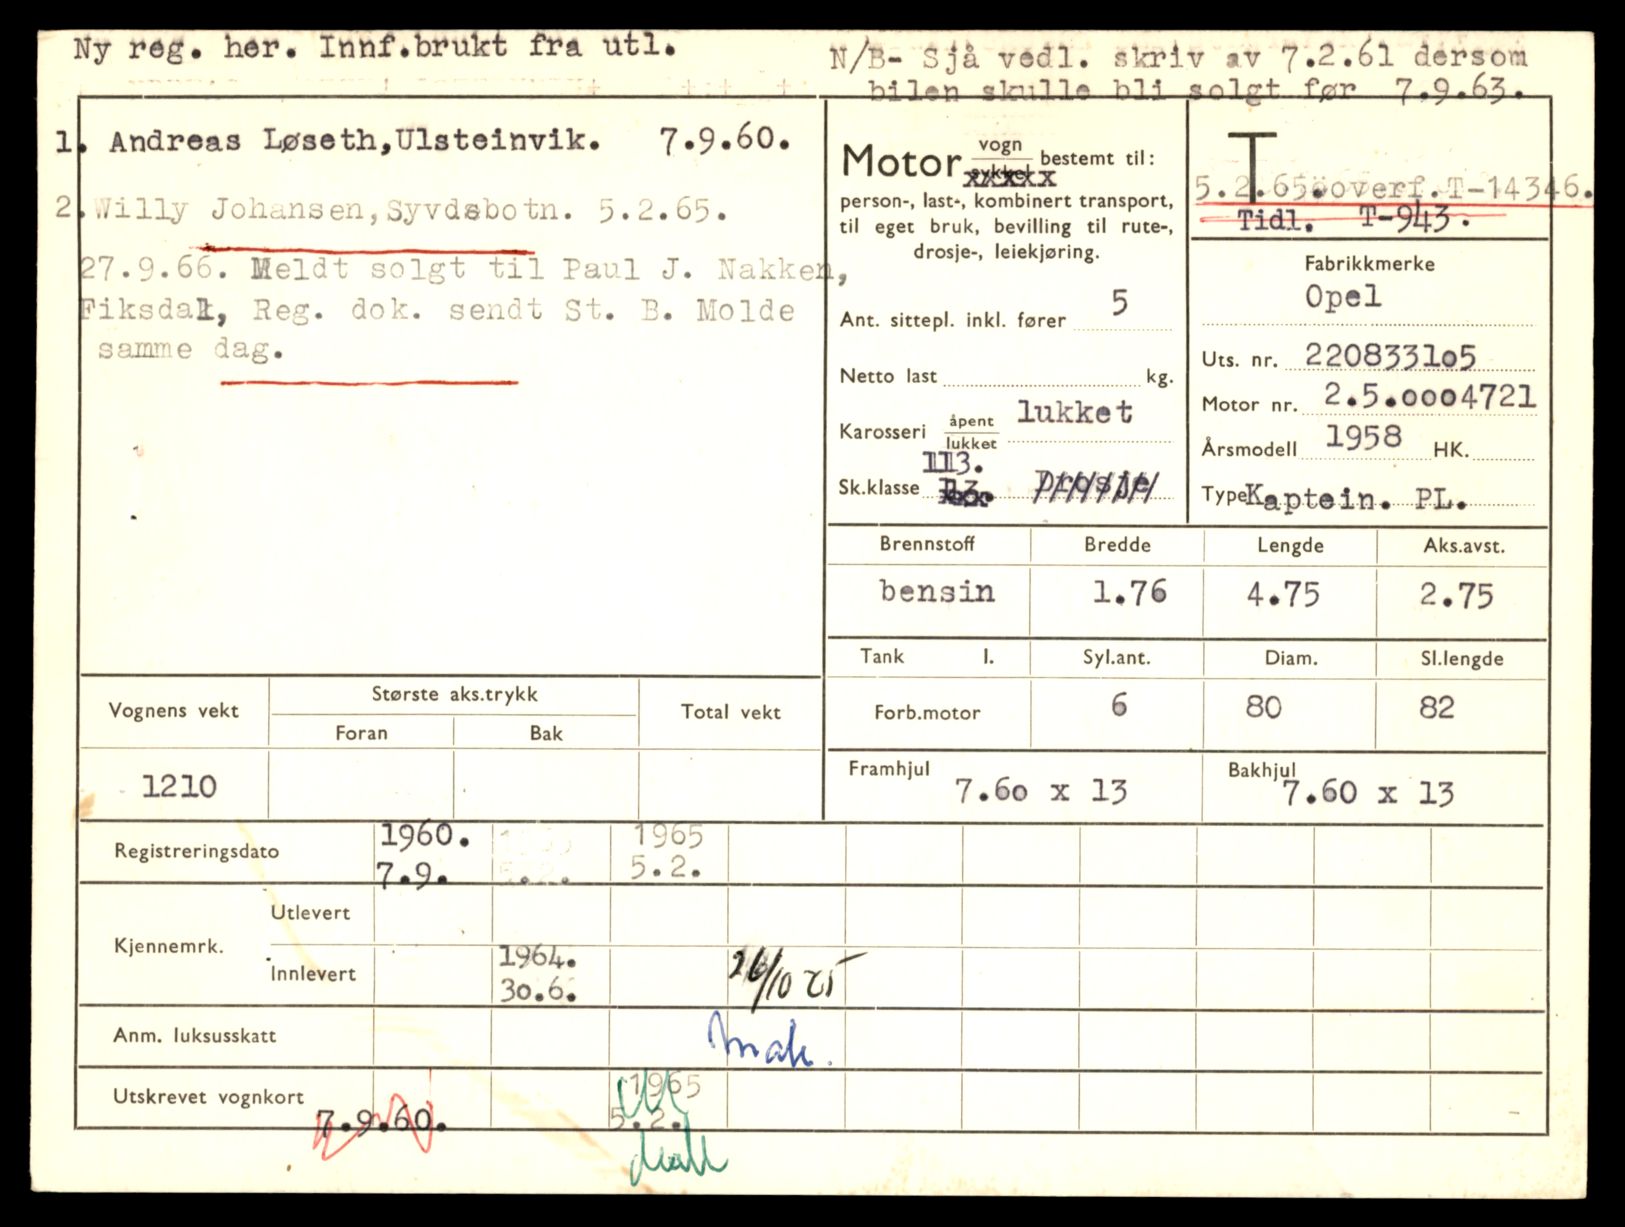 Ny reg. her. Innf.brukt fra utl.
N/B- Sjå vedl. skriv av 7.2.61 dersom
bilen skulle bli solgt før 7.9.63.
1. Andreas Løseth,Ulsteinvik. 7.9.60.
2. Willy Johansen,Syvdsbotn. 5.2.65.
27.9.66. Meldt solgt til Paul J. Nakken,
Fiksdal, Reg. dok. sendt St. B. Molde
samme dag.
Motor vogn/sykkel bestemt til:
person-, last-, kombinert transport,
til eget bruk, bevilling til rute-,
drosje-, leiekjøring.
Ant. sittepl. inkl. fører 5
Netto last kg.
Karosseri åpent/lukket lukket
113.
Sk.klasse Drosje
T
5.2.65.overf.T-14346.
Tidl. T-943.
Fabrikkmerke
Opel
Uts. nr. 220833105
Motor nr. 2.5.0004721
Årsmodell 1958 HK.
Type Kaptein. PL.
Brennstoff Bredde Lengde Aks.avst.
bensin 1.76 4.75 2.75
Tank l. Syl.ant. Diam. Sl.lengde
Forb.motor 6 80 82
Framhjul 7.60 x 13 Bakhjul 7.60 x 13
Vognens vekt Største aks.trykk Total vekt
Foran Bak
1210
Registreringsdato 1960. 1965
7.9. 5.2. 5.2.
Kjennemrk. Utlevert
Innlevert 1964. 26/10 75
30.6.
Anm. luksusskatt mak.
Utskrevet vognkort 1965
7.9.60. 5.2.